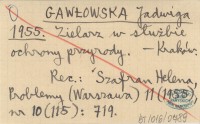 GAWŁOWSKA Jadwiga
1955. Zielarz w służbie
ochrony przyrody. – Kraków.
Rec.: Szafran Helena,
Problemy (Warszawa) 11 (1955)
nr 10 (115) : 719.